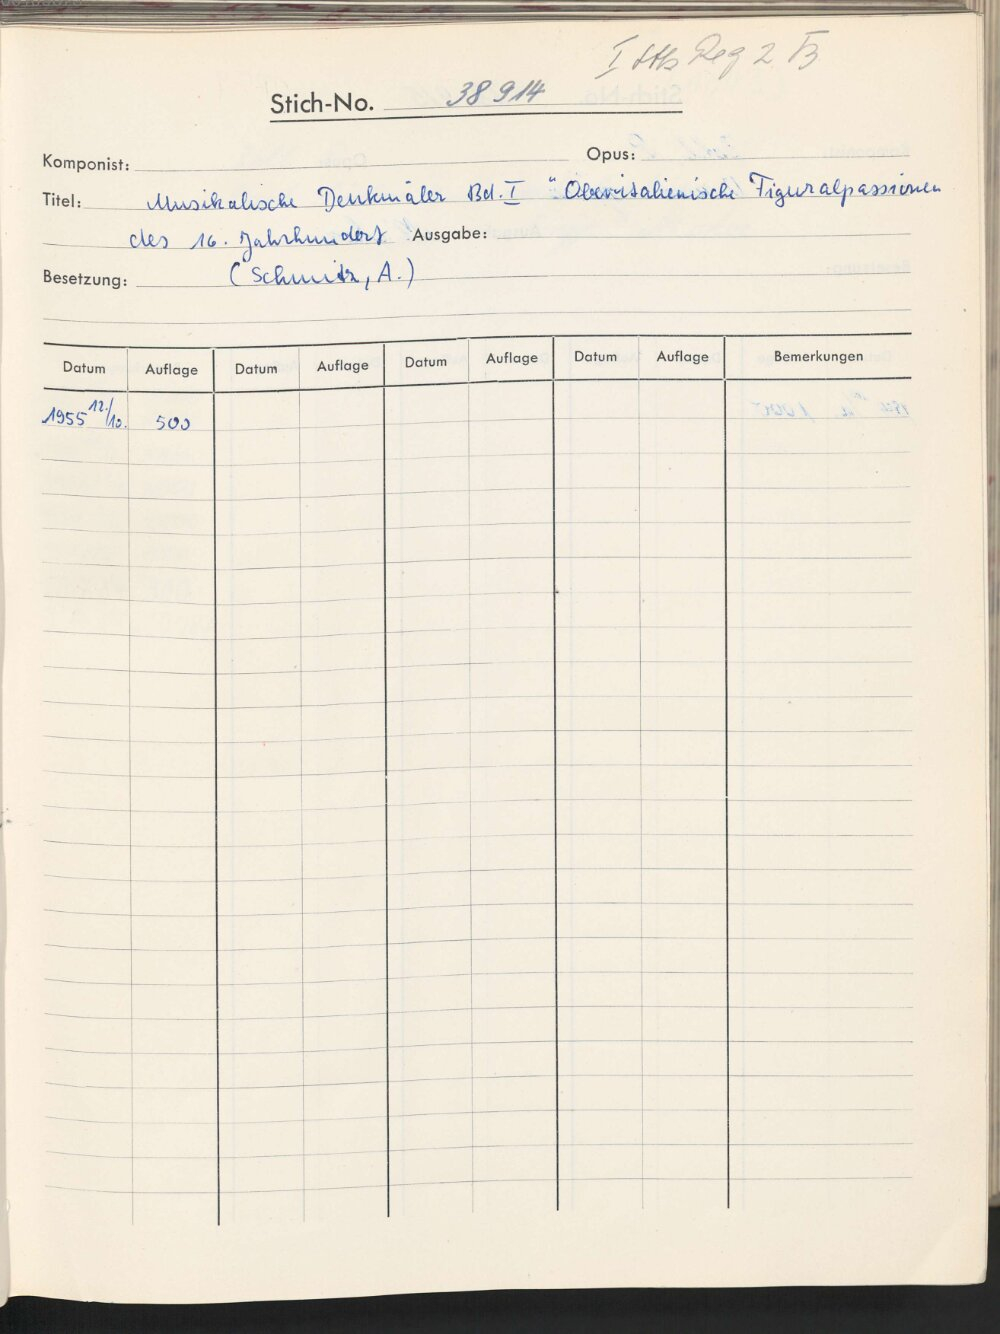 Stich-No. 38914
Komponist: Opus:
Titel: Musikalische Denkmäler Bd. I "Oberitalienische Figuralpassionen
des 16. Jahrhundert Ausgabe:
Besetzung: (Schmitz, A.)
Datum Auflage Datum Auflage Datum Auflage Datum Auflage Bemerkungen
1955 12./10. 500